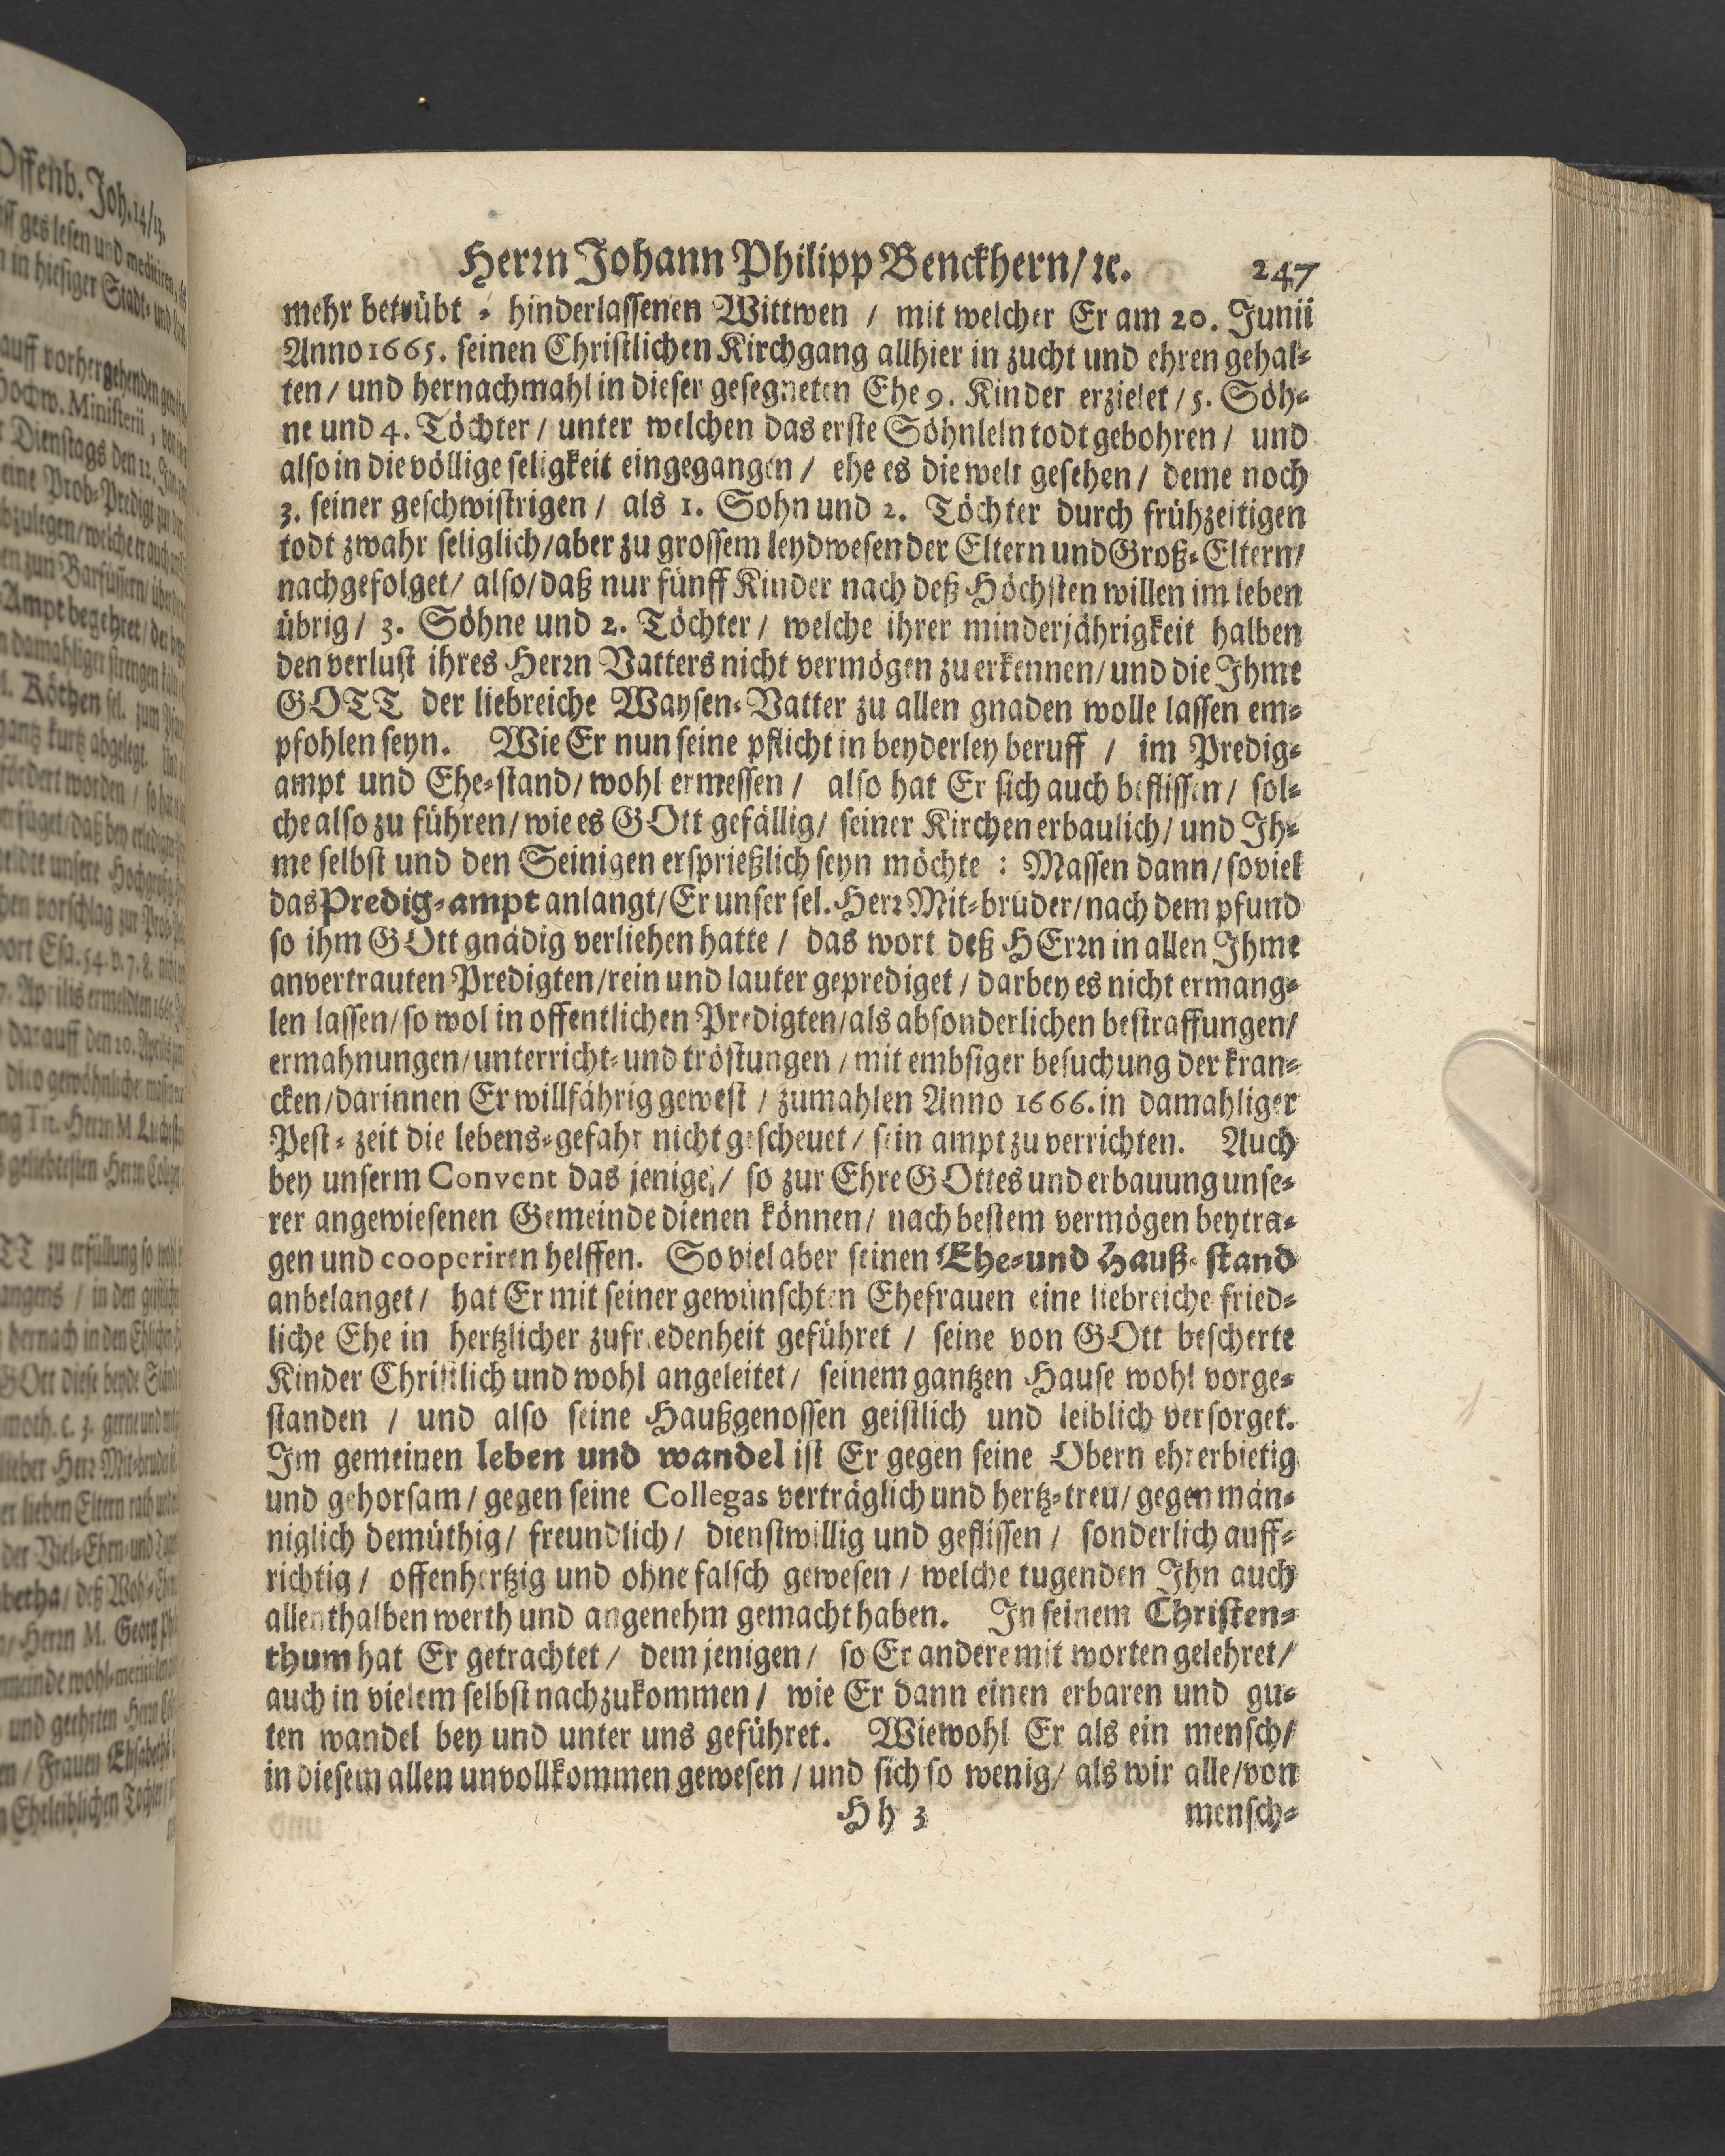 Offenb. Joh. 14/13.
Herrn Johann Philipp Benckhern/ ꝛc. 247
mehr betrübt - hinderlassenen Wittwen / mit welcher Er am 20. Junii
Anno 1665. seinen Christlichen Kirchgang allhier in zucht und ehren gehal-
ten / und hernachmahl in dieser gesegneten Ehe 9. Kinder erzielet / 5. Söh-
ne und 4. Töchter / unter welchen das erste Söhnleln todt gebohren / und
also in die völlige seligkeit eingegangen / ehe es die welt gesehen / deme noch
3. seiner geschwistrigen / als 1. Sohn und 2. Töchter durch frühzeitigen
todt zwahr seliglich / aber zu grossem leydwesen der Eltern und Groß-Eltern /
nachgefolget / also / daß nur fünff Kinder nach deß Höchsten willen im leben
übrig / 3. Söhne und 2. Töchter / welche ihrer minderjährigkeit halben
den verlust ihres Herrn Vatters nicht vermögen zu erkennen / und die Ihme
GOTT der liebreiche Waysen-Vatter zu allen gnaden wolle lassen em-
pfohlen seyn. Wie Er nun seine pflicht in beyderley beruff / im Predig-
ampt und Ehe-stand / wohl ermessen / also hat Er sich auch beflissen / sol-
che also zu führen / wie es GOtt gefällig / seiner Kirchen erbaulich / und Ih-
me selbst und den Seinigen ersprießlich seyn möchte : Massen dann / soviel
das Predig-ampt anlangt / Er unser sel. Herr Mit-brüder / nach dem pfund
so ihm GOtt gnädig verliehen hatte / das wort deß HErrn in allen Ihme
anvertrauten Predigten / rein und lauter geprediget / darbey es nicht ermang-
len lassen / so wol in offentlichen Predigten / als absonderlichen bestraffungen /
ermahnungen / unterricht- und tröstungen / mit embsiger besuchung der kran-
cken / darinnen Er willfährig gewest / zumahlen Anno 1666. in damahliger
Pest-zeit die lebens-gefahr nicht gescheuet / sein ampt zu verrichten. Auch
bey unserm Convent das jenige / so zur Ehre GOttes und erbauung unse-
rer angewiesenen Gemeinde dienen können / nach bestem vermögen beytra-
gen und cooperiren helffen. So viel aber seinen Ehe-und Hauß-stand
anbelanget / hat Er mit seiner gewünschten Ehefrauen eine liebreiche fried-
liche Ehe in hertzlicher zufriedenheit geführet / seine von GOtt bescherte
Kinder Christlich und wohl angeleitet / seinem gantzen Hause wohl vorge-
standen / und also seine Haußgenossen geistlich und leiblich versorget.
Im gemeinen leben und wandel ist Er gegen seine Obern ehrerbietig
und gehorsam / gegen seine Collegas verträglich und hertz-treu / gegen män-
niglich demüthig / freundlich / dienstwillig und geflissen / sonderlich auff-
richtig / offenhertzig und ohne falsch gewesen / welche tugenden Ihn auch
allenthalben werth und angenehm gemacht haben. In seinem Christen-
thum hat Er getrachtet / dem jenigen / so Er andere mit worten gelehret /
auch in vielem selbst nachzukommen / wie Er dann einen erbaren und gu-
ten wandel bey und unter uns geführet. Wiewohl Er als ein mensch /
in diesem allen unvollkommen gewesen / und sich so wenig / als wir alle / von
Hh 3 mensch-